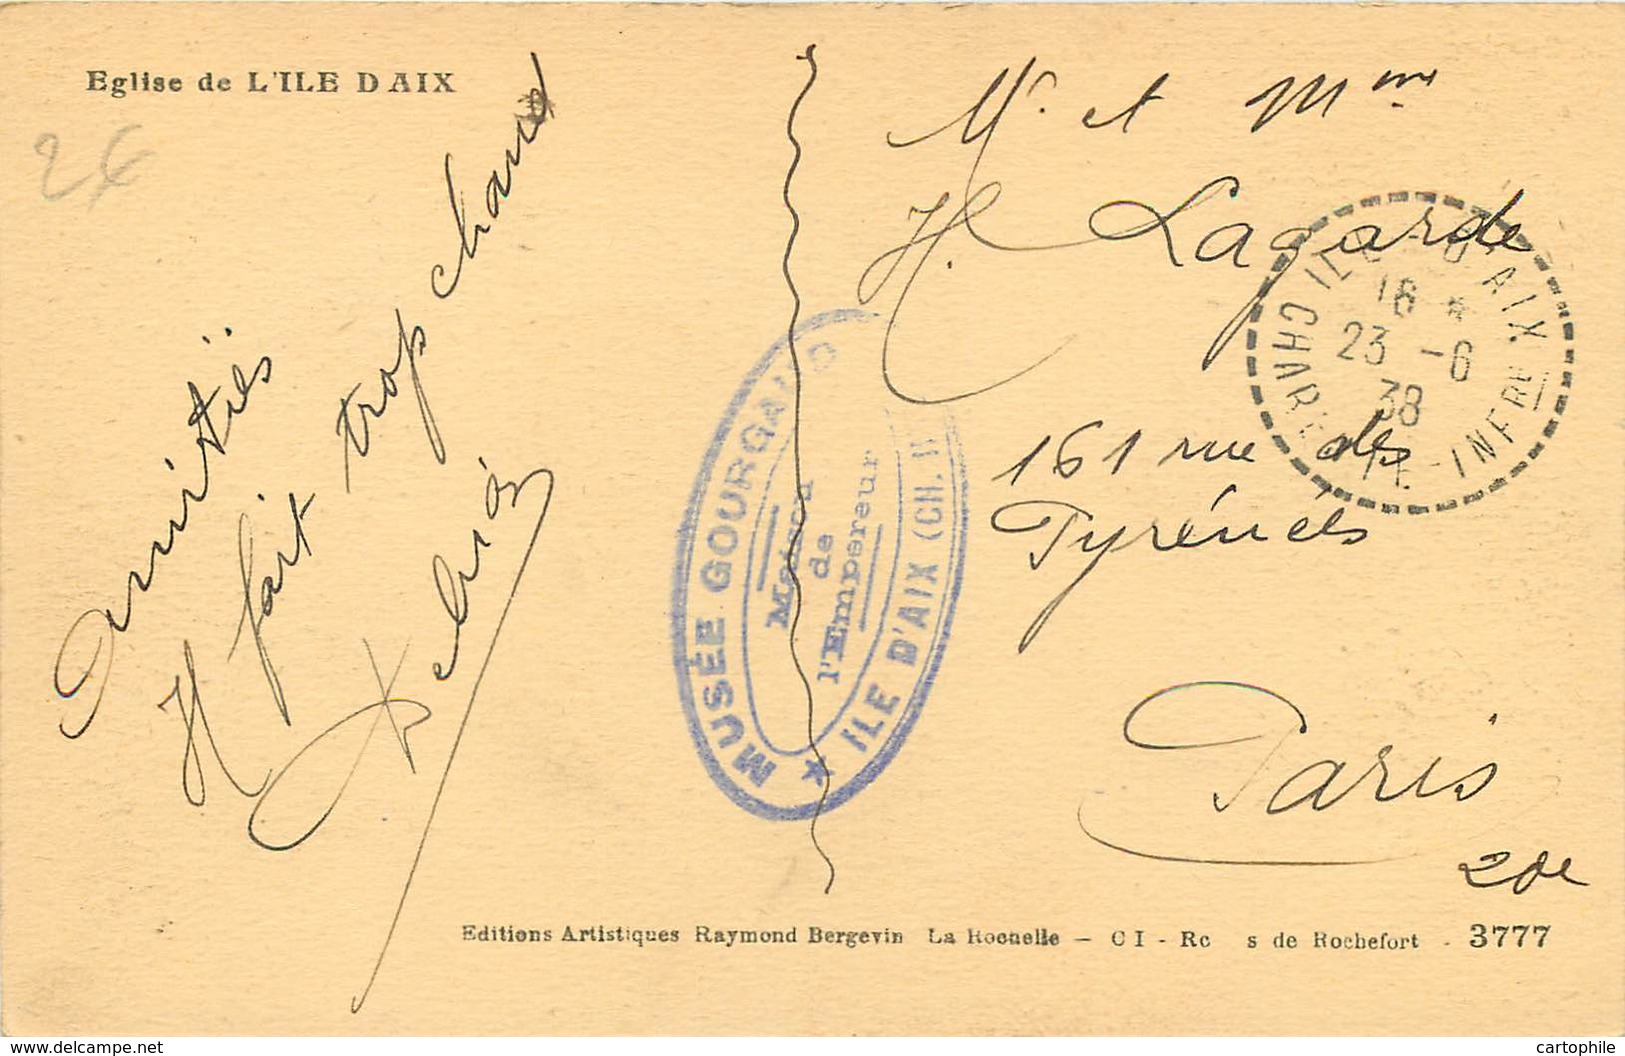 Eglise de L'ILE D AIX
Amitiés
Il fait trop chaud
M. et Mme
H. Lagarde
161 rue des
Pyrénées
Paris
20e
ILE-D'AIX
CHARENTE-INFRE
16 *
23 -6
38
MUSÉE GOURGAUD
Maison
de
l'Empereur
★ ILE D'AIX (CH. I
Editions Artistiques Raymond Bergevin La Rochelle - C I - s de Rochefort - 3777
www.delcampe.net
cartophile